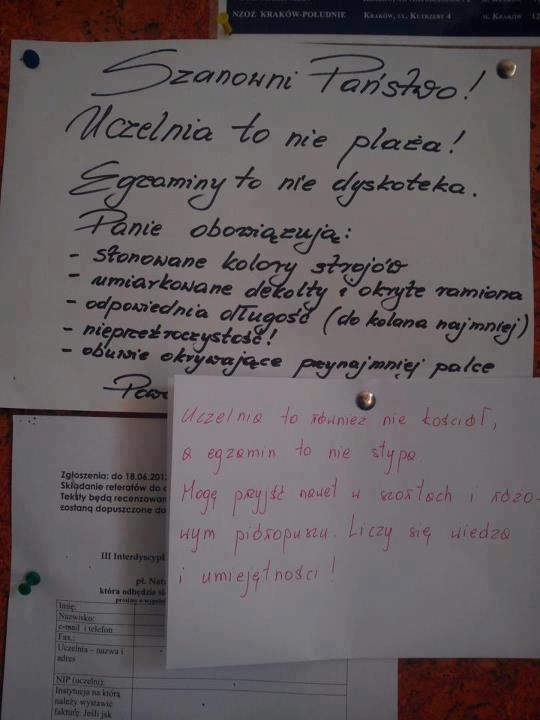 NZOZ KRAKÓW-POŁUDNIE KRAKÓW, UL. KUTRZEBY 4 UL. KRAKÓW
Szanowni Państwo!
Uczelnia to nie plaża!
Egzaminy to nie dyskoteka.
Panie obowiązują:
- stonowane kolory strojów
- umiarkowane dekolty i okryte ramiona
- odpowiednia długość (do kolana najmniej)
- nieprzeźroczystość!
- obuwie okrywające przynajmniej palce
Uczelnia to również nie kościół,
a egzamin to nie stypa.
Mogę przyjść nawet w szortach i różo-
wym pióropuszu. Liczy się wiedza
i umiejętności!
Zgłoszenia: do 18.06.201
Składanie referatów do
Teksty będą recenzowan
zostaną dopuszczone do
III Interdyscypl
pt. Natu
która odbędzie si
Imię:
Nazwisko:
e-mail i telefon
Fax.:
Uczelnia – nazwa i
adres
NIP (uczelni):
Instytucja na którą
należy wystawić
fakturę: Jeśli jak